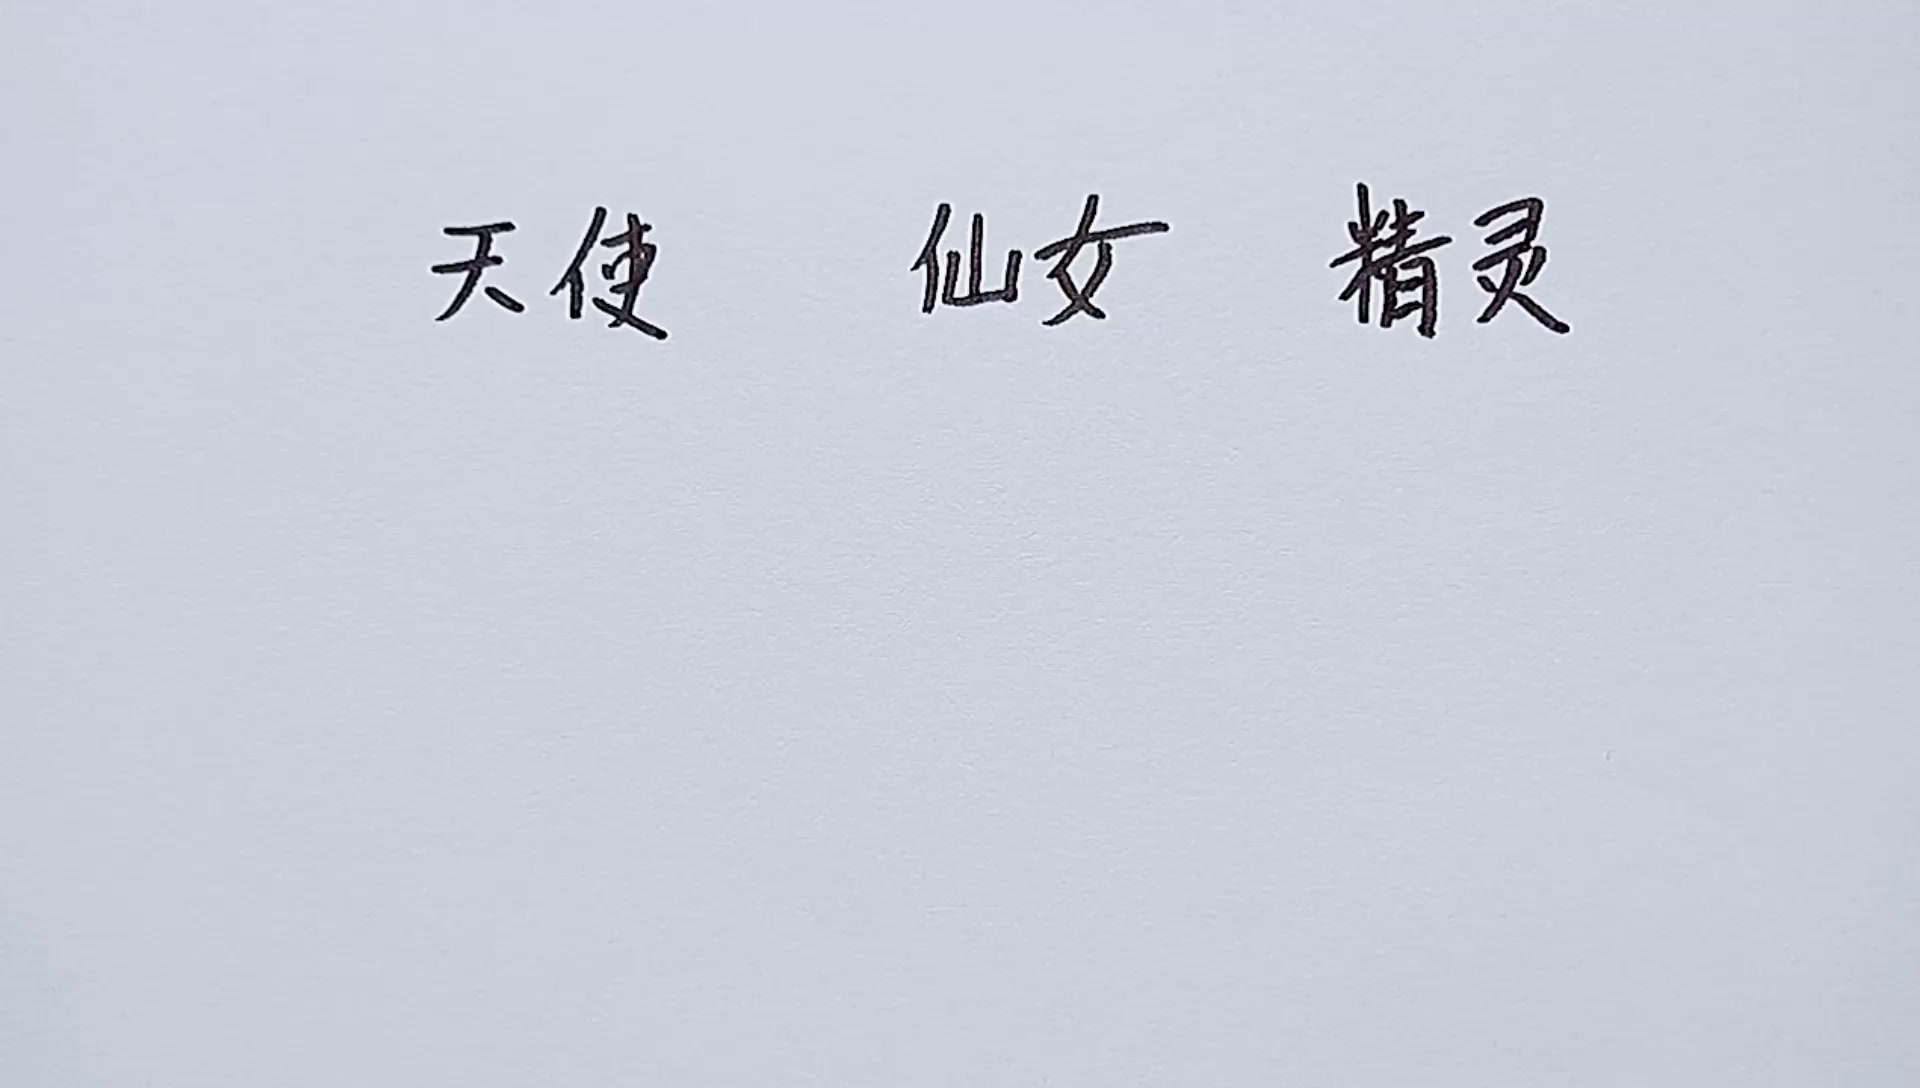 天使 仙女 精灵